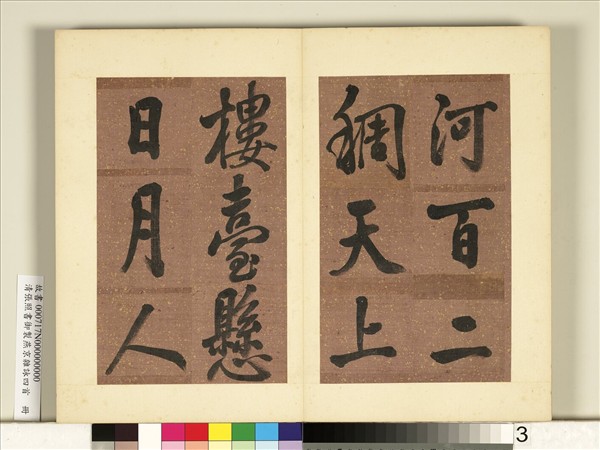 河百二
稠天上
樓臺懸
日月人
故書 000717N000000000
清張照書御製燕京雜詠四首 冊
3